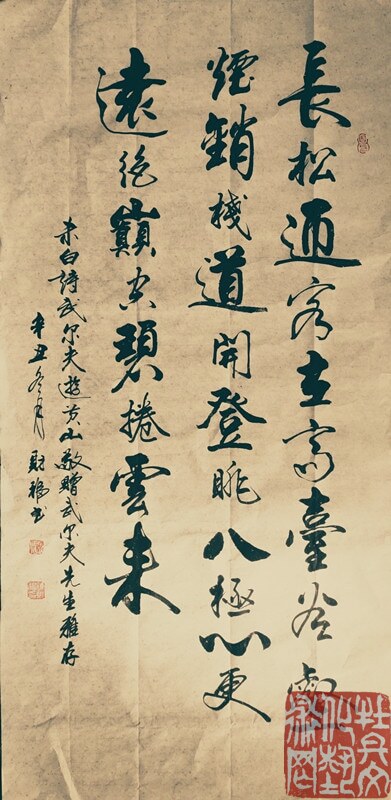 長松迎客立高臺谷
煙銷棧道開登眺八極心更
遠絕巔空碧捲雲来
白詩武尔夫遊黄山敬贈武尔夫先生雅存
辛丑冬月財福书